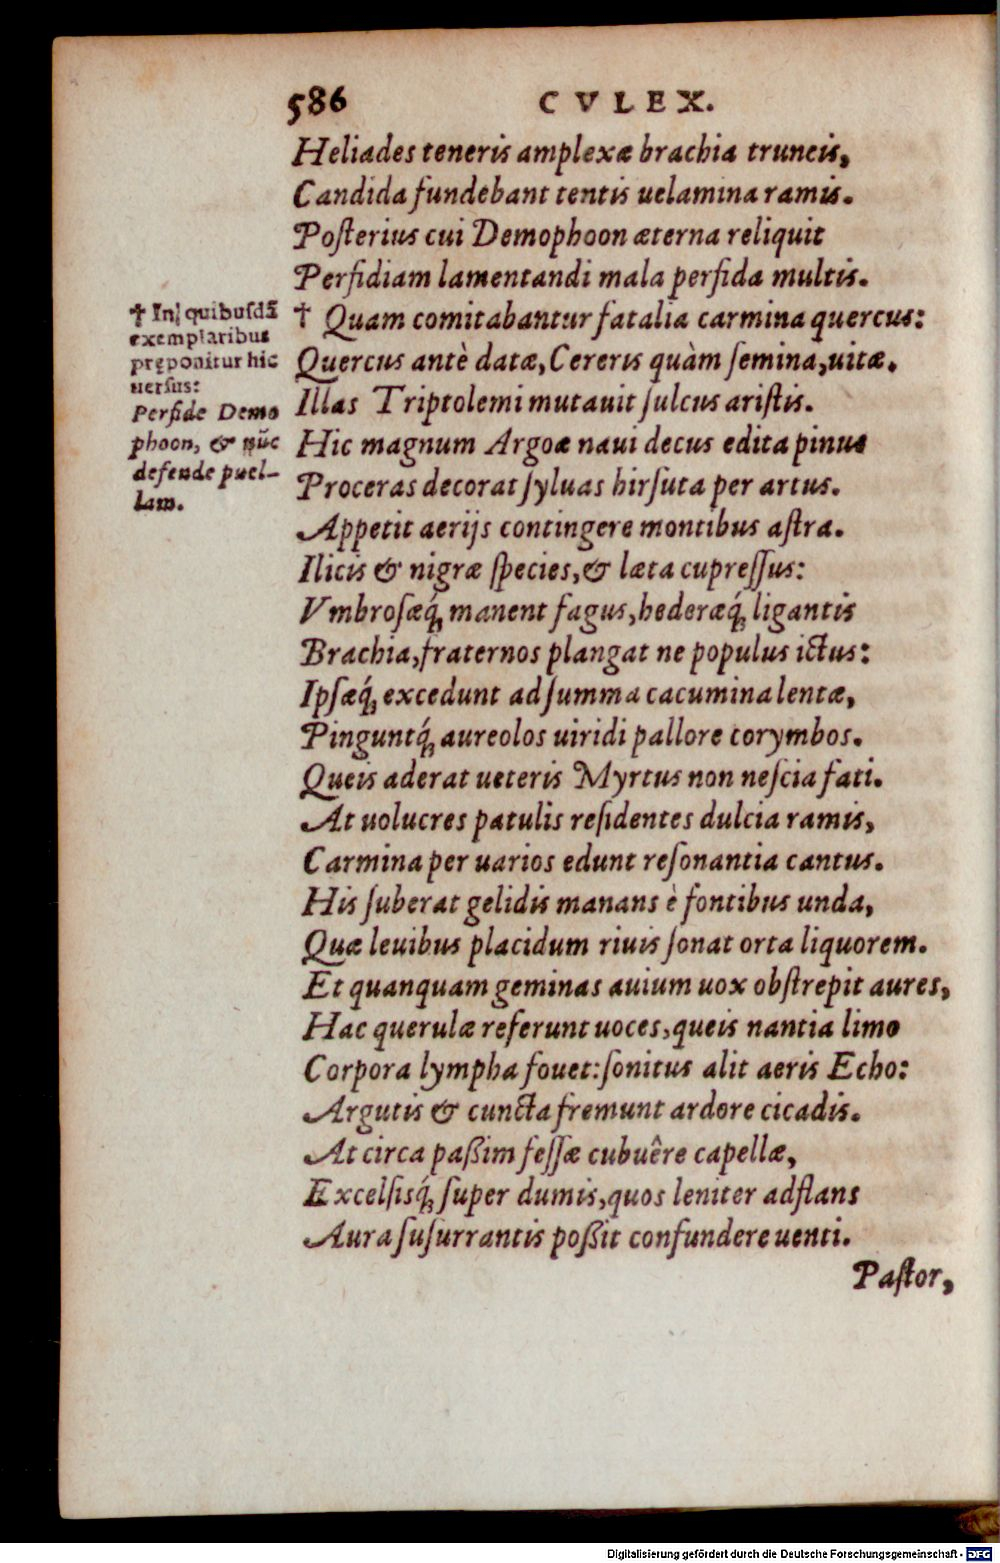 586 CVLEX.
Heliades teneris amplexæ brachia truncis,
Candida fundebant tentis uelamina ramis.
Poſterius cui Demophoon æterna reliquit
Perfidiam lamentandi mala perfida multis.
† Quam comitabantur fatalia carmina quercus:
Quercus antè datæ, Cereris quàm ſemina, uitæ.
Illas Triptolemi mutauit ſulcus ariſtis.
Hic magnum Argoæ naui decus edita pinus
Proceras decorat ſyluas hirſuta per artus.
Appetit aerijs contingere montibus aſtra.
Ilicis & nigræ ſpecies, & læta cupreſſus:
Vmbroſæq́; manent fagus, hederæq́; ligantis
Brachia, fraternos plangat ne populus ictus:
Ipſæq́; excedunt ad ſumma cacumina lentæ,
Pinguntq́; aureolos uiridi pallore corymbos.
Queis aderat ueteris Myrtus non neſcia fati.
At uolucres patulis reſidentes dulcia ramis,
Carmina per uarios edunt reſonantia cantus.
His ſuberat gelidis manans è fontibus unda,
Quæ leuibus placidum riuis ſonat orta liquorem.
Et quanquam geminas auium uox obſtrepit aures,
Hac querulæ referunt uoces, queis nantia limo
Corpora lympha fouet: ſonitus alit aeris Echo:
Argutis & cuncta fremunt ardore cicadis.
At circa paßim feſſæ cubuêre capellæ,
Excelſisq́; ſuper dumis, quos leniter adflans
Aura ſuſurrantis poßit confundere uenti.
Paſtor,
† In quibuſdã
exemplaribus
pręponitur hic
uerſus:
Perfide Demo
phoon, & nũc
defende puel-
lam.
Digitalisierung gefördert durch die Deutsche Forschungsgemeinschaft - DFG